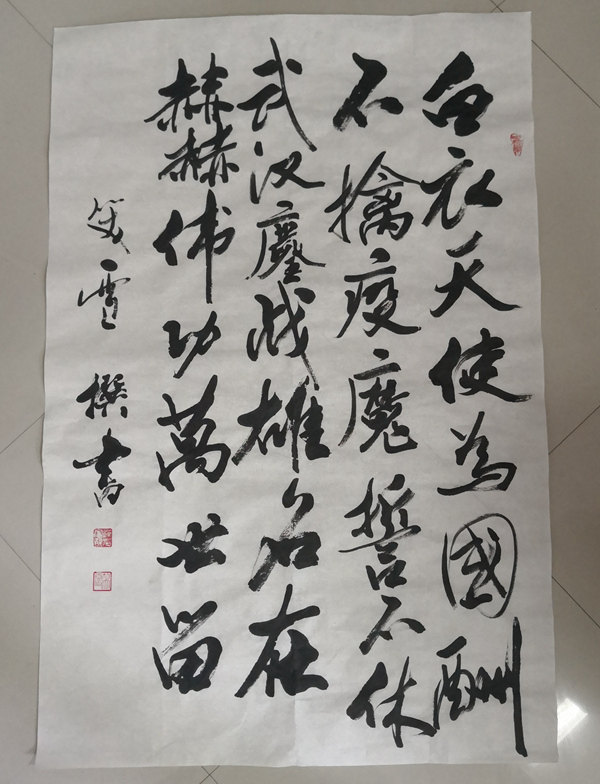 白衣天使为國酬
不擒疫魔誓不休
武汉鏖战雄名在
赫赫伟功萬世留
笑雪撰书